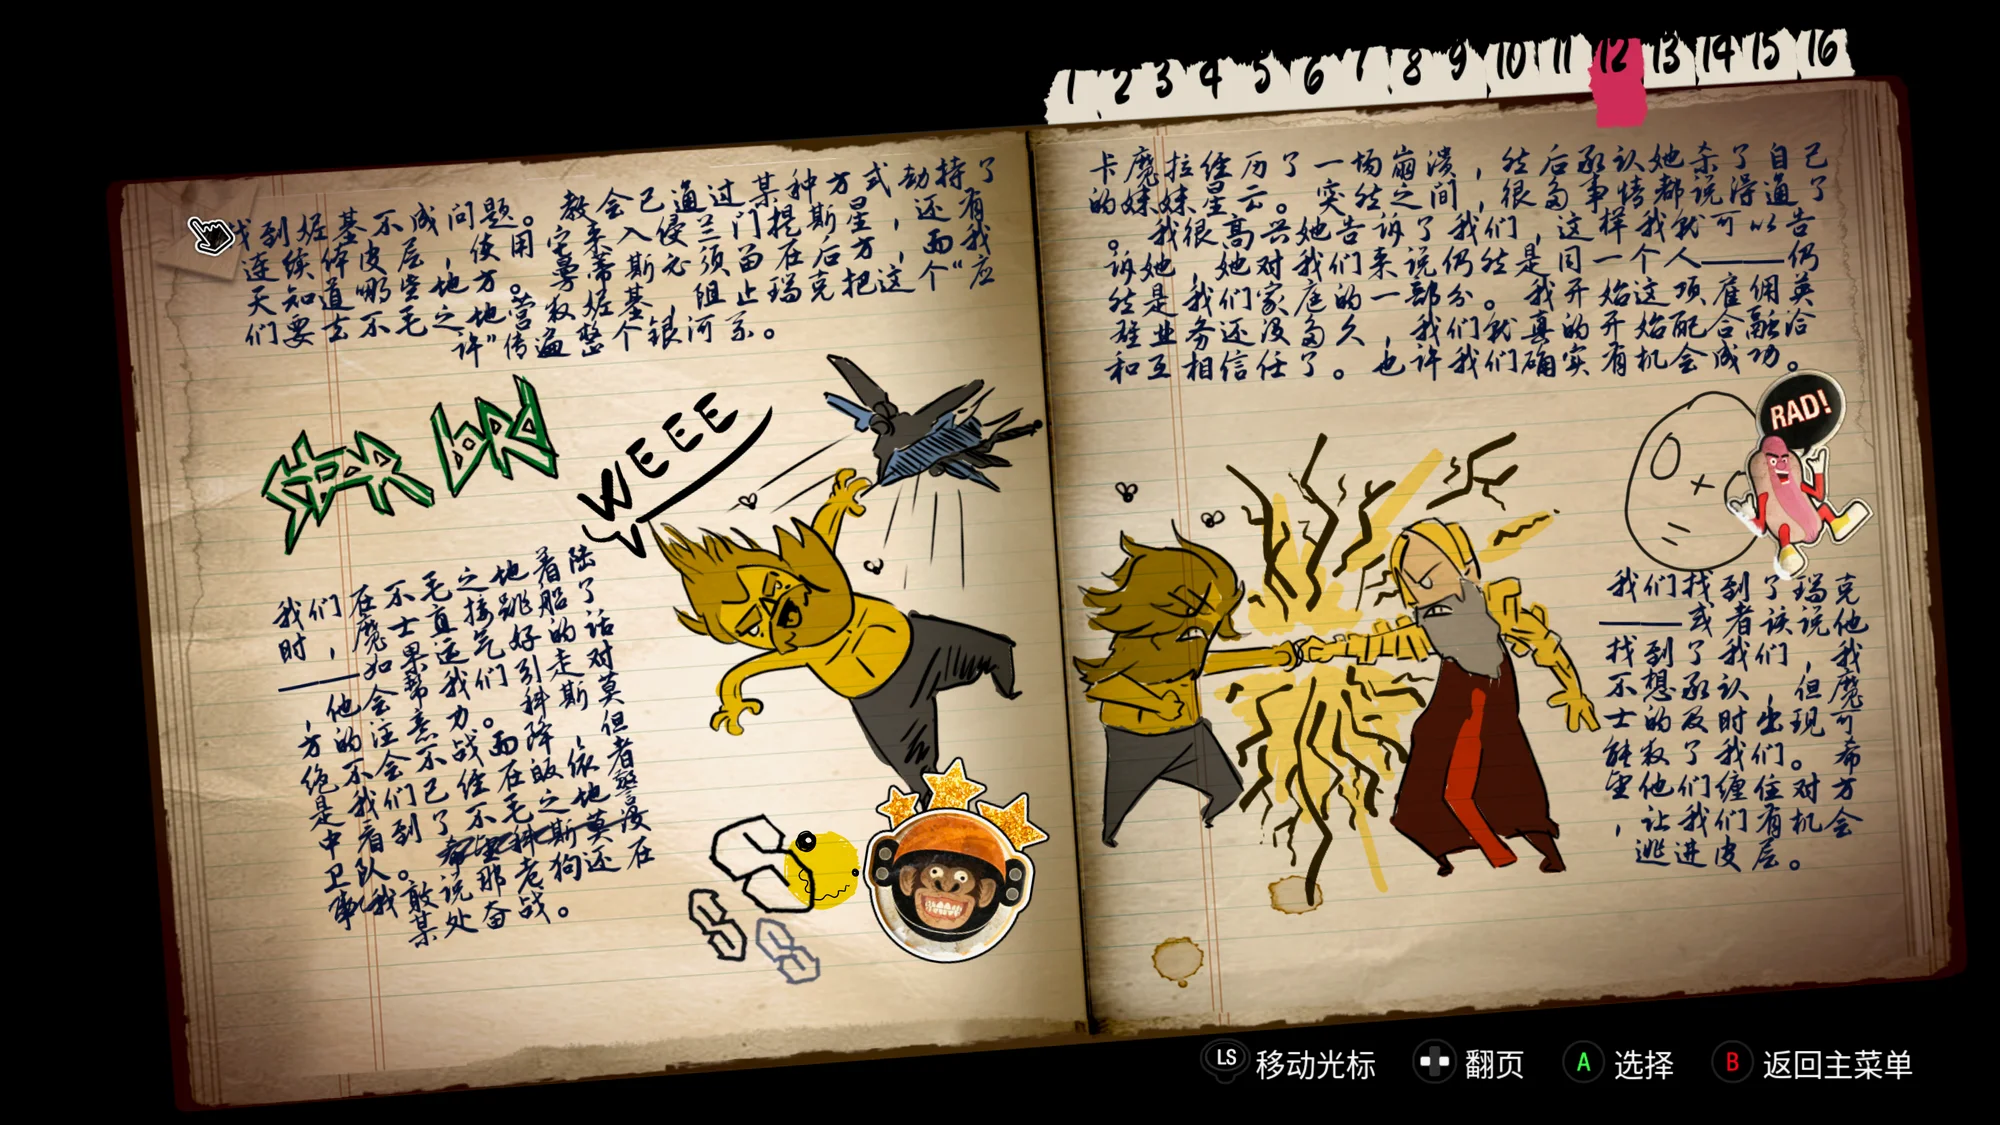 1 2 3 4 5 6 7 8 9 10 11 12 13 14 15 16
找到娓基不成问题。教会已通过某种方式劫持了
连续体皮层，使用它来入侵兰门提斯星，还有
天知道哪些地方。曼蒂斯必须留在后方，而我
们要去不毛之地营救娓基，阻止瑞克把这个“应
许”传遍整个银河系。
STAR LORD
WEEE
我们在不毛之地着陆
时，魔士直接跳船了
——如果运气好的话
，他会帮我们引走对
方的注意力。科斯莫
绝不会不战而降，但
是我们已经在皈依者
中看到了不毛之地警
卫队。希望科斯莫没
事，我敢说那老狗还在
某处奋战。
卡魔拉经历了一场崩溃，然后承认她杀了自己
的妹妹星云。突然之间，很多事情都说得通了
。我很高兴她告诉了我们，这样我就可以告
诉她，她对我们来说仍然是同一个人——仍
然是我们家庭的一部分。我开始这项雇佣英
雄业务还没多久，我们就真的开始配合融洽
和互相信任了。也许我们确实有机会成功。
RAD!
我们找到了瑞克
——或者该说他
找到了我们，我
不想承认，但魔
士的及时出现可
能救了我们。希
望他们缠住对方
，让我们有机会
逃进皮层。
LS 移动光标 翻页 A 选择 B 返回主菜单